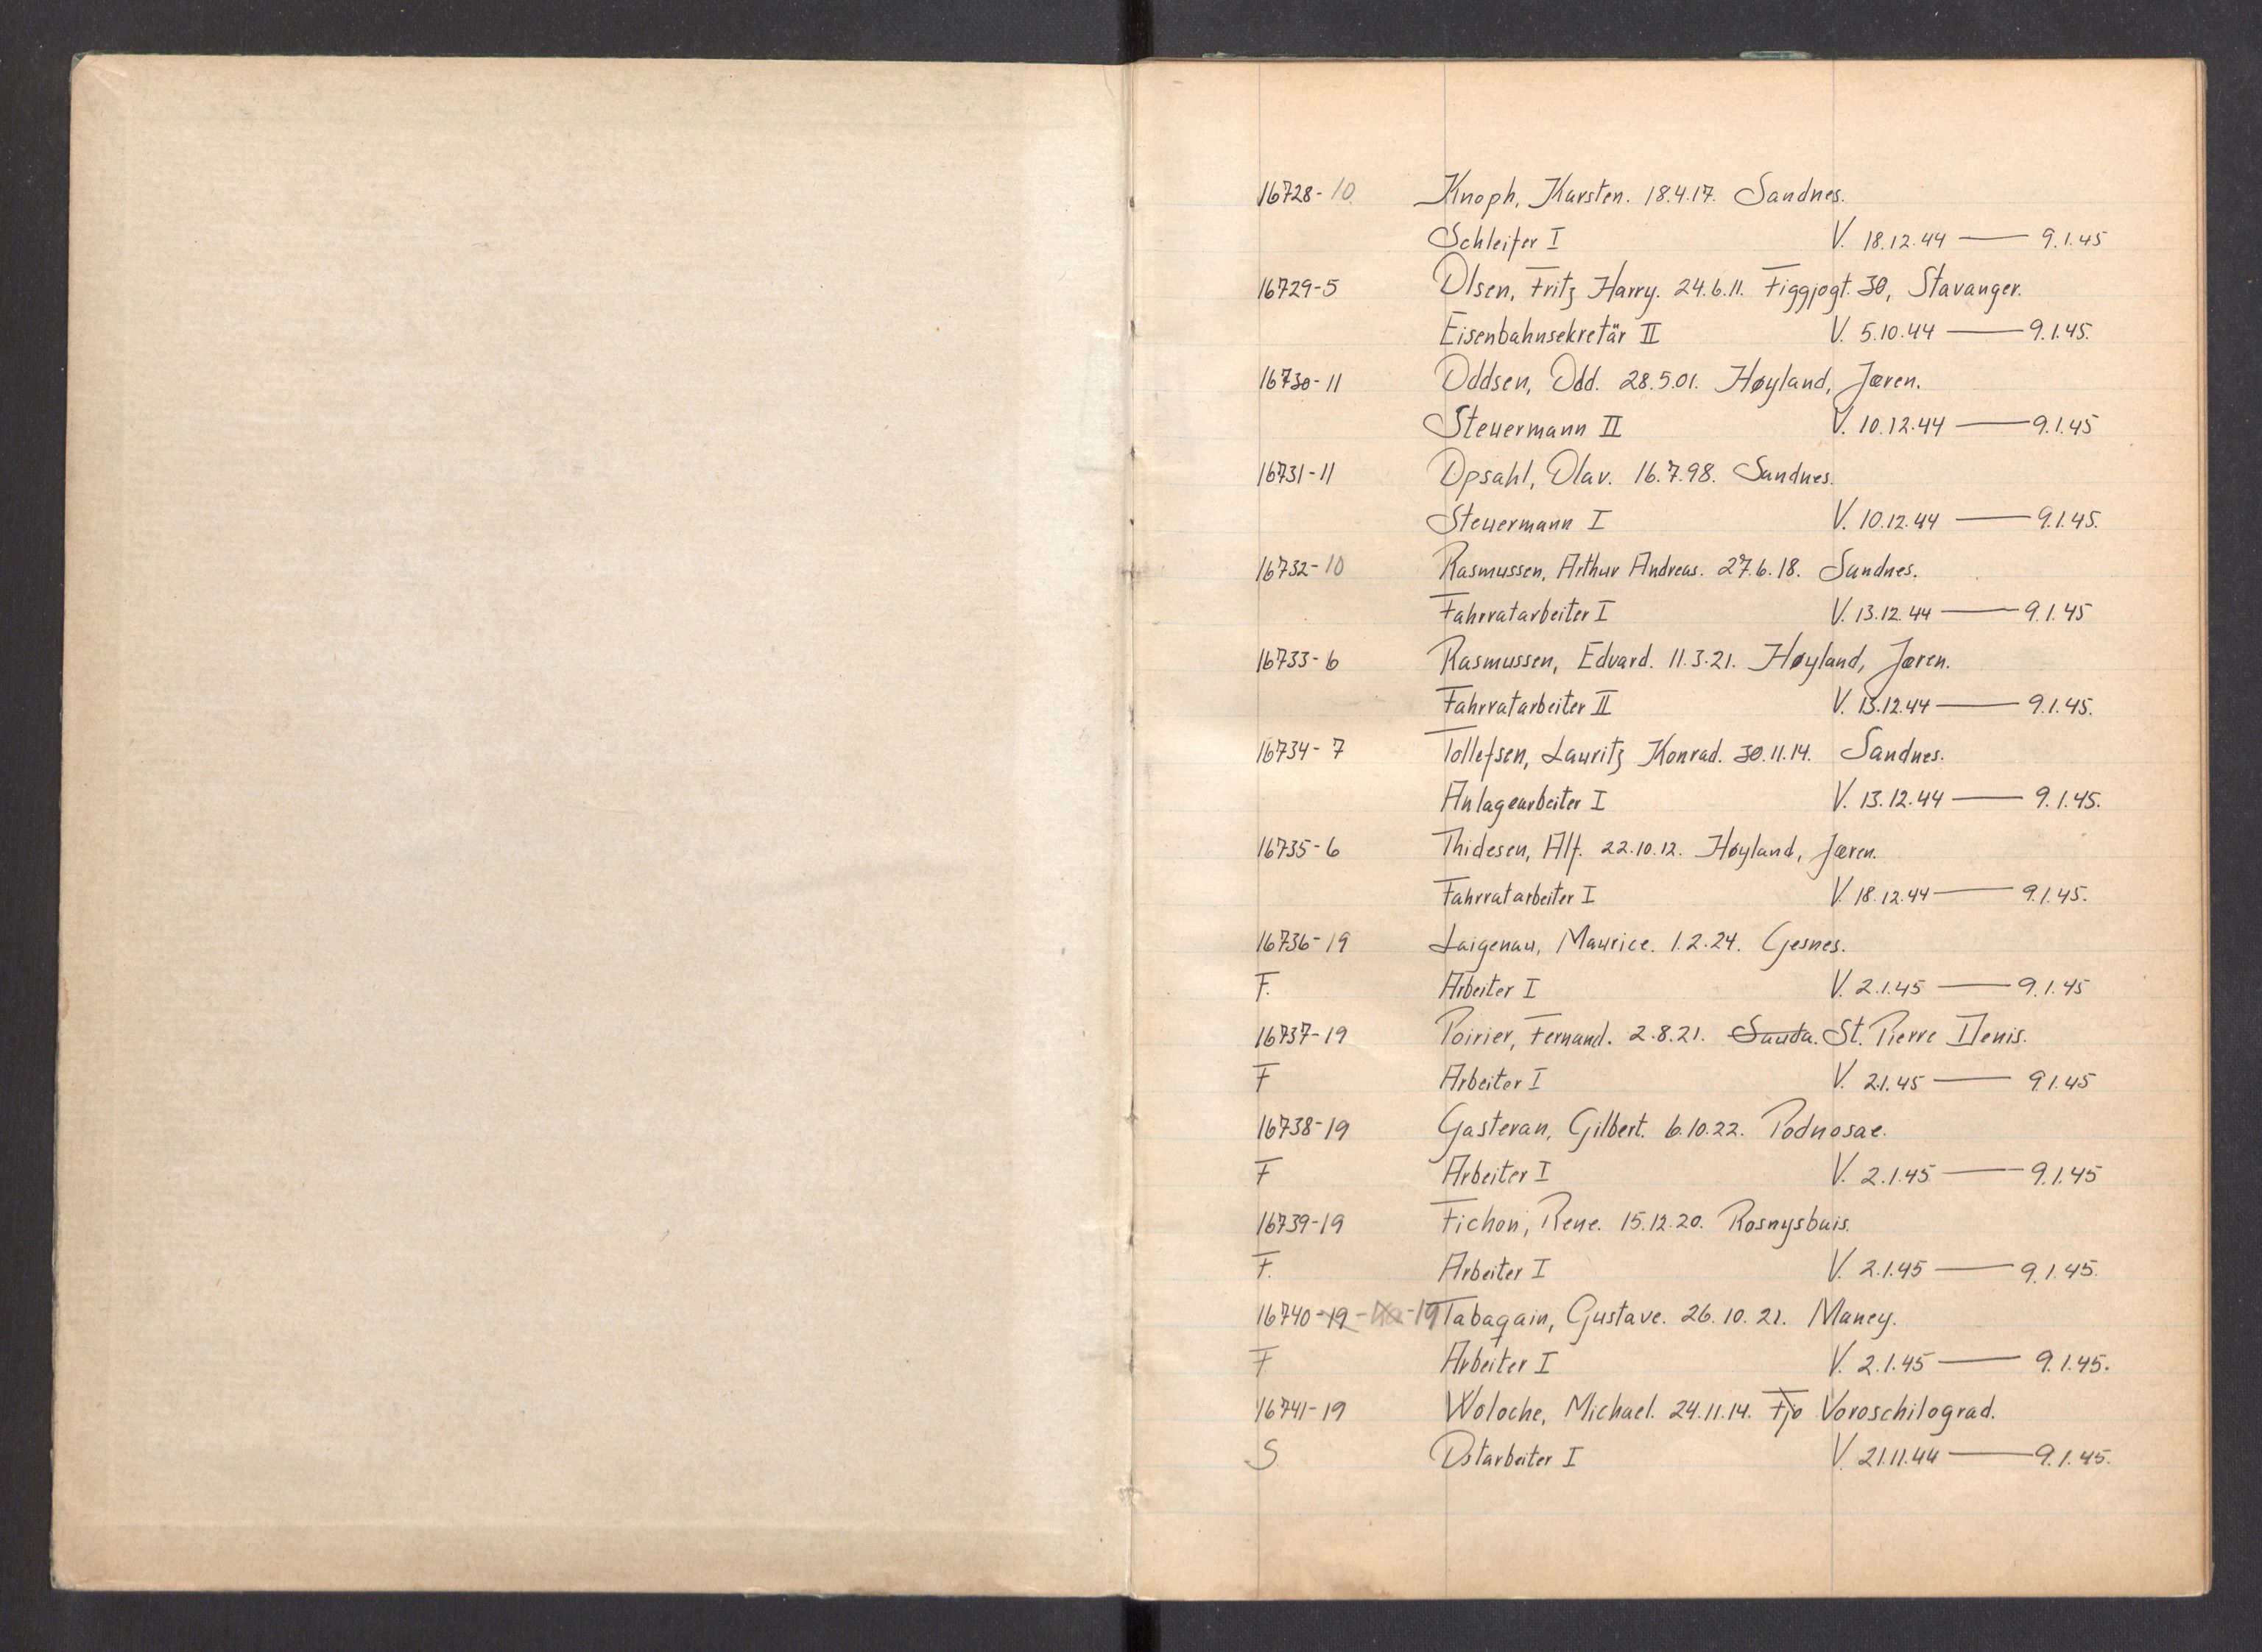 16728-10 Knoph, Karsten. 18.4.17. Sandnes.
Schleifer I V. 18.12.44 — 9.1.45
16729-5 Olsen, Fritz Harry. 24.6.11. Figgjogt. 30, Stavanger.
Eisenbahnsekretär II V. 5.10.44 — 9.1.45.
16730-11 Oddsen, Odd. 28.5.01. Høyland, Jæren.
Steuermann II V. 10.12.44 — 9.1.45
16731-11 Opsahl, Olav. 16.7.98. Sandnes.
Steuermann I V. 10.12.44 — 9.1.45.
16732-10 Rasmussen, Arthur Andreas. 27.6.18. Sandnes.
Fahrratarbeiter I V. 13.12.44 — 9.1.45
16733-6 Rasmussen, Edvard. 11.3.21. Høyland, Jæren.
Fahrratarbeiter II V. 13.12.44 — 9.1.45.
16734-7 Tollefsen, Lauritz Konrad. 30.11.14. Sandnes.
Anlagearbeiter I V. 13.12.44 — 9.1.45.
16735-6 Thidesen, Alf. 22.10.12. Høyland, Jæren.
Fahrratarbeiter I V. 18.12.44 — 9.1.45.
16736-19 Laigenau, Maurice. 1.2.24. Gesnes.
F. Arbeiter I V. 2.1.45 — 9.1.45
16737-19 Poirier, Fernand. 2.8.21. Sauda. St. Pierre Denis.
F Arbeiter I V. 2.1.45 — 9.1.45
16738-19 Gasteran, Gilbert. 6.10.22. Podnosae.
F Arbeiter I V. 2.1.45 — 9.1.45
16739-19 Fichon, Rene. 15.12.20. Rosnysbuis.
F. Arbeiter I V. 2.1.45 — 9.1.45.
16740-19 -19 Tabagain, Gustave. 26.10.21. Maney.
F Arbeiter I V. 2.1.45 — 9.1.45.
16741-19 Woloche, Michael. 24.11.14. Fjo Voroschilograd.
S. Ostarbeiter I V. 21.11.44 — 9.1.45.